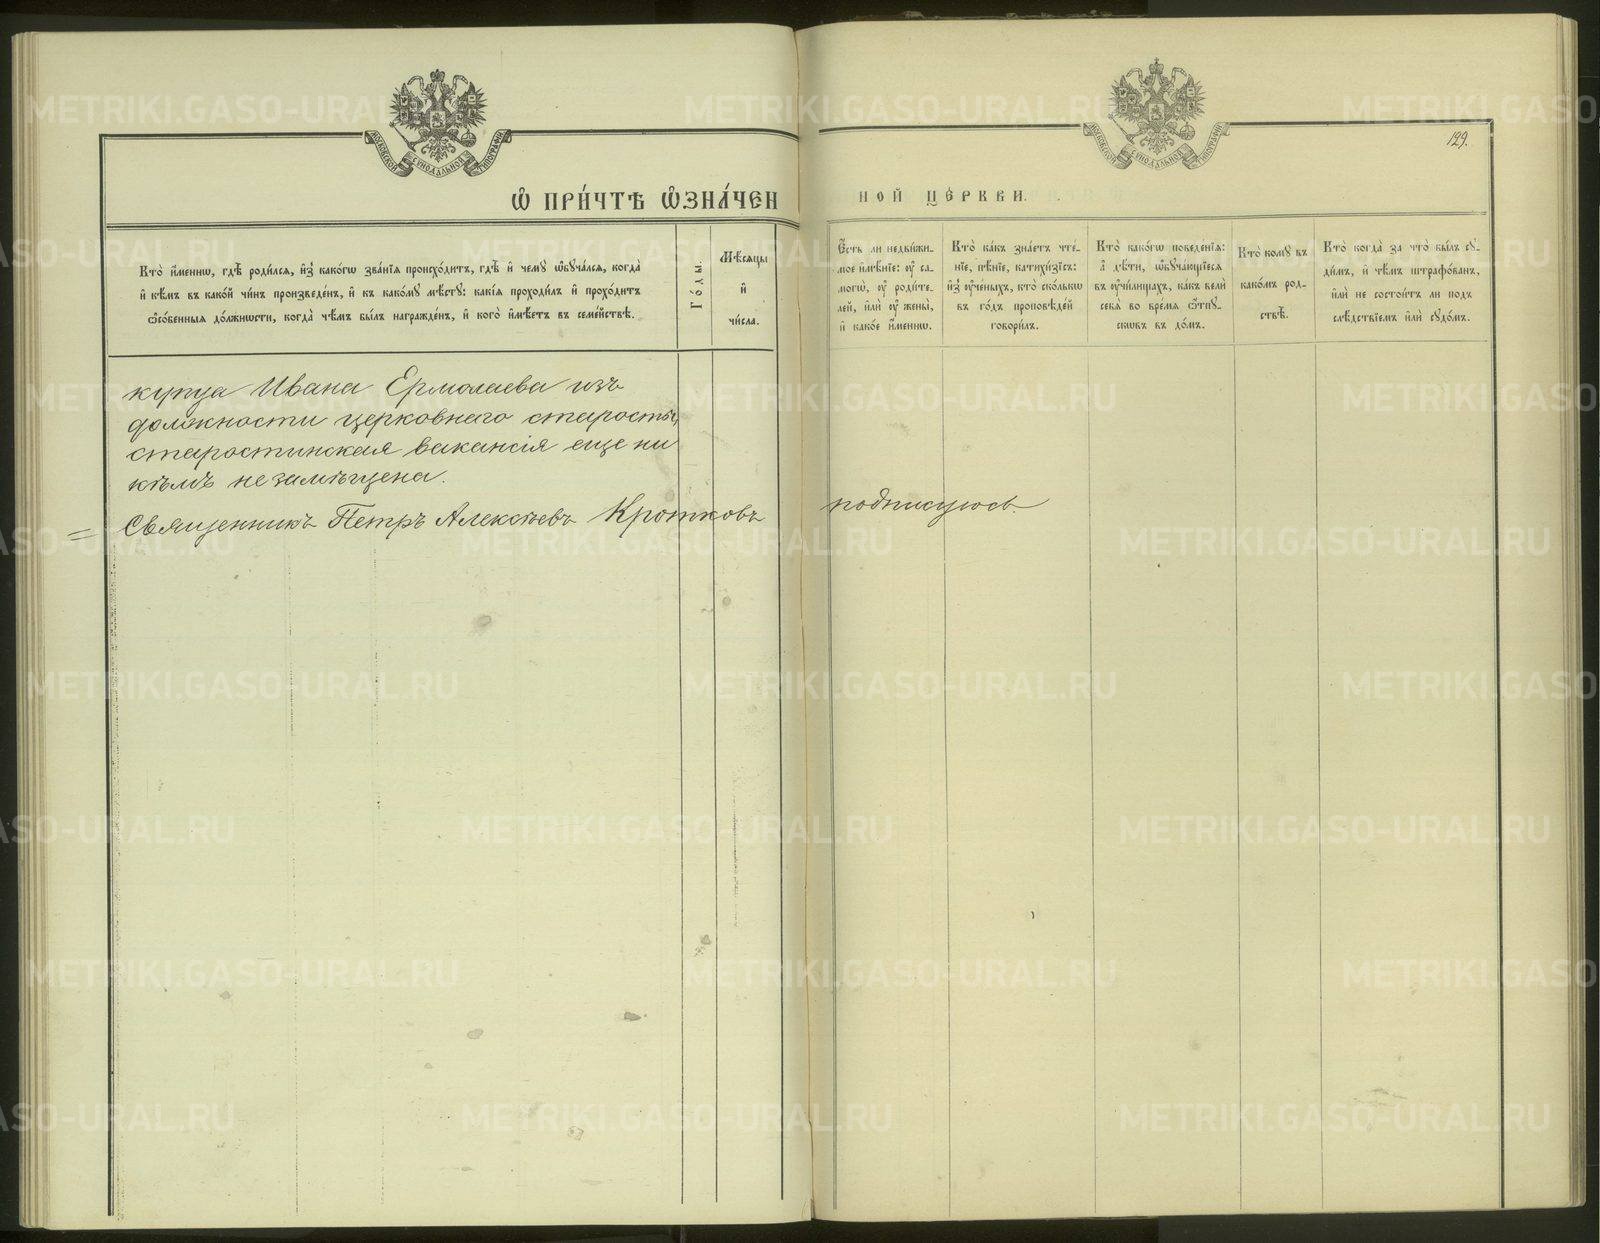 МОСКОВСКОЙ СѴНОДАЛЬНОЙ ТИПОГРАФІИ
МОСКОВСКОЙ СѴНОДАЛЬНОЙ ТИПОГРАФІИ
129.
Ѡ ПРИ́ЧТѢ Ѡ҆ЗНА́ЧЕН
НОЙ ЦЕ́РКВИ.
Кто̀ и҆́меннѡ, гдѣ̀ роди́лсѧ, и҆з̾ како́гѡ зва́нїѧ происхо́дитъ, гдѣ̀ и҆ чемꙋ̀ ѡ҆бꙋча́лсѧ, когда̀
и҆ кѣ́мъ въ како́й чи́нъ произведе́нъ, и҆ къ како́мꙋ мѣ́стꙋ: какі́ѧ проходи́лъ и҆ прохо́дитъ
ѻ҆со́бенныѧ до́лжности, когда̀ чѣ́мъ бы́лъ награжде́нъ, и҆ кого̀ и҆мѣ́етъ въ семе́йствѣ.
Го́ды.
Мѣ́сѧцы
и҆
чи́сла.
Є҆́сть ли недви́жи-
мое и҆мѣ́нїе: оу҆ са-
могѡ̀, оу҆ роди́те-
лей, и҆лѝ оу҆ жены̀,
и҆ како́е и҆́меннѡ.
Кто̀ ка́къ зна́етъ чте́-
нїе, пѣ́нїе, катихи́зїсъ:
и҆з̾ оу҆че́ныхъ, кто̀ ско́лькѡ
въ го́дъ про́повѣдей
говори́лъ.
Кто̀ како́гѡ поведе́нїѧ:
а҆ дѣ́ти, ѡ҆бꙋча́ющїесѧ
въ оу҆чи́лищахъ, ка́къ велѝ
себѧ̀ во вре́мѧ ѿпꙋ-
сковъ въ до́мъ.
Кто̀ комꙋ̀ въ
како́мъ род-
ствѣ̀.
Кто̀ когда̀ за что̀ бы́лъ сꙋ-
ди́мъ, и҆ тѣ́мъ штрафо́ванъ,
и҆лѝ не состои́тъ ли под̾
слѣ́дствїемъ и҆лѝ сꙋдо́мъ.
купца Ивана Ермолаева изъ
должности церковнаго старосты,
старостинская вакансія еще ни
кѣмъ не замѣщена.
= Священникъ Петръ Алексѣевъ Кротковъ подписуюсь.
METRIKI.GASO-URAL.RU